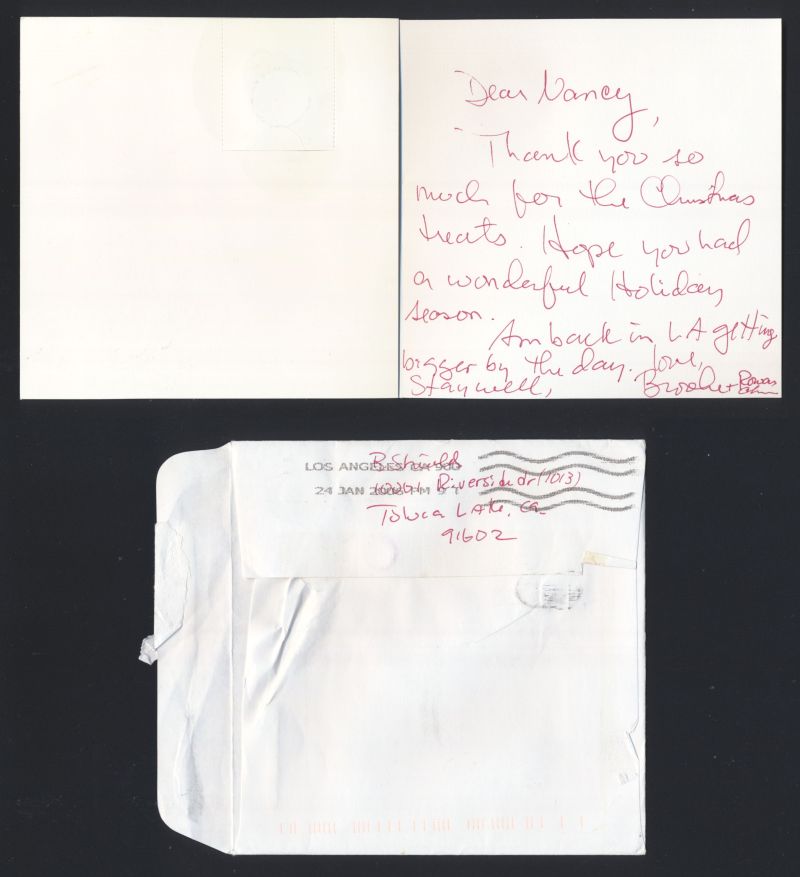 Dear Nancy,
Thank you so
much for the Christmas
treats. Hope you had
a wonderful Holiday
season.
Am back in LA getting
bigger by the day. Love,
Stay well, Brooke + Rowan
LOS ANGELES CA 900
24 JAN 2006 PM
B Shields
Riverside dr (1013)
Toluca Lake, Ca
91602